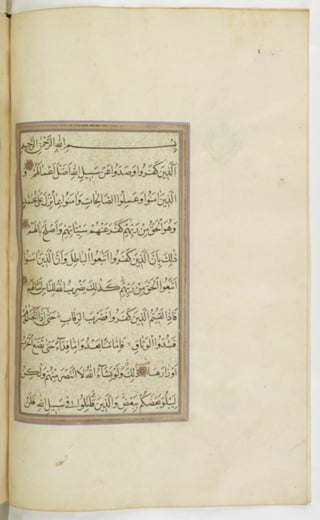 بسم الله الرحمن الرحيم
الذين كفروا وصدوا عن سبيل الله اضل اعمالهم و
الذين امنوا وعملوا الصالحات وامنوا بما نزل على محمد
وهو الحق من ربهم كفر عنهم سيئاتهم واصلح بالهم
ذلك بان الذين كفروا اتبعوا الباطل وان الذين امنوا
اتبعوا الحق من ربهم كذلك يضرب الله للناس امثالهم
فاذا لقيتم الذين كفروا فضرب الرقاب حتى اذا اثخنتموهم
فشدوا الوثاق فاما منا بعد واما فداء حتى تضع الحرب
اوزارها ذلك ولو يشاء الله لانتصر منهم ولكن
ليبلو بعضكم ببعض والذين قتلوا في سبيل الله فلن